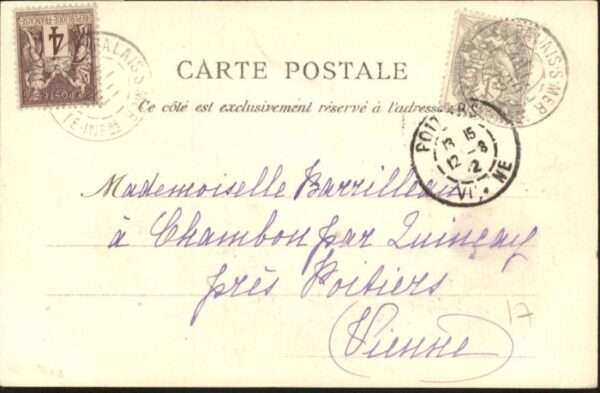 4
RÉPUBLIQUE FRANÇAISE
PALAIS S MER
PALAIS S MER
CARTE POSTALE
Ce côté est exclusivement réservé à l'adresse
POITIERS
13 15
12 - 8
2
VIENNE
Mademoiselle Barrilleau
à Chambon par Quinçay
près Poitiers
(Vienne)
17